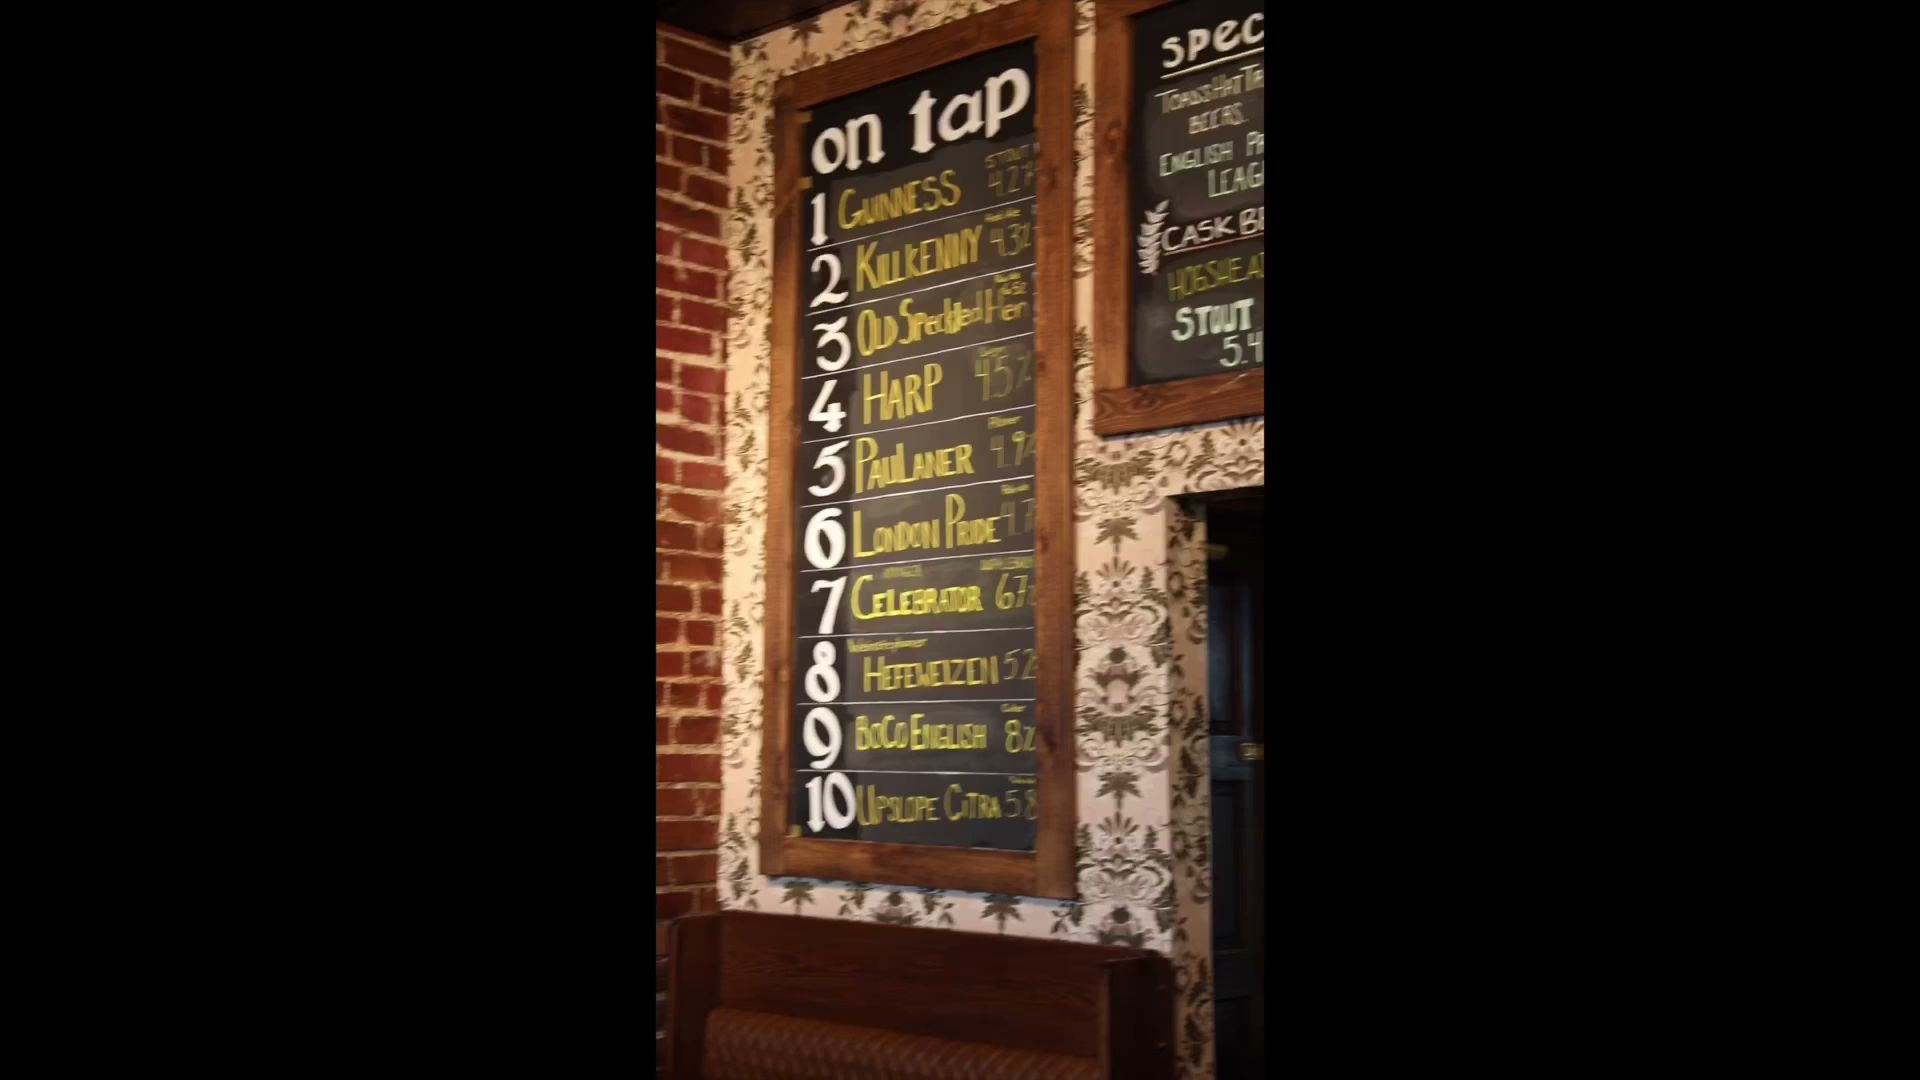 on tap
1 GUINNESS STOUT 4.2%
2 KILLKENNY Red Ale 4.3%
3 OLD Speckled Hen
4 HARP 4.5%
5 PAULANER 4.9%
6 LONDON PRIDE 4.7
7 CELEBRATOR 6.7%
8 HEFEWEIZEN 5.2
9 BOCO ENGLISH 8%
10 UPSLOPE CITRA 5.8
SPEC
BEERS.
ENGLISH PR
LEAG
CASK BE
HOGSHEA
STOUT
5.4